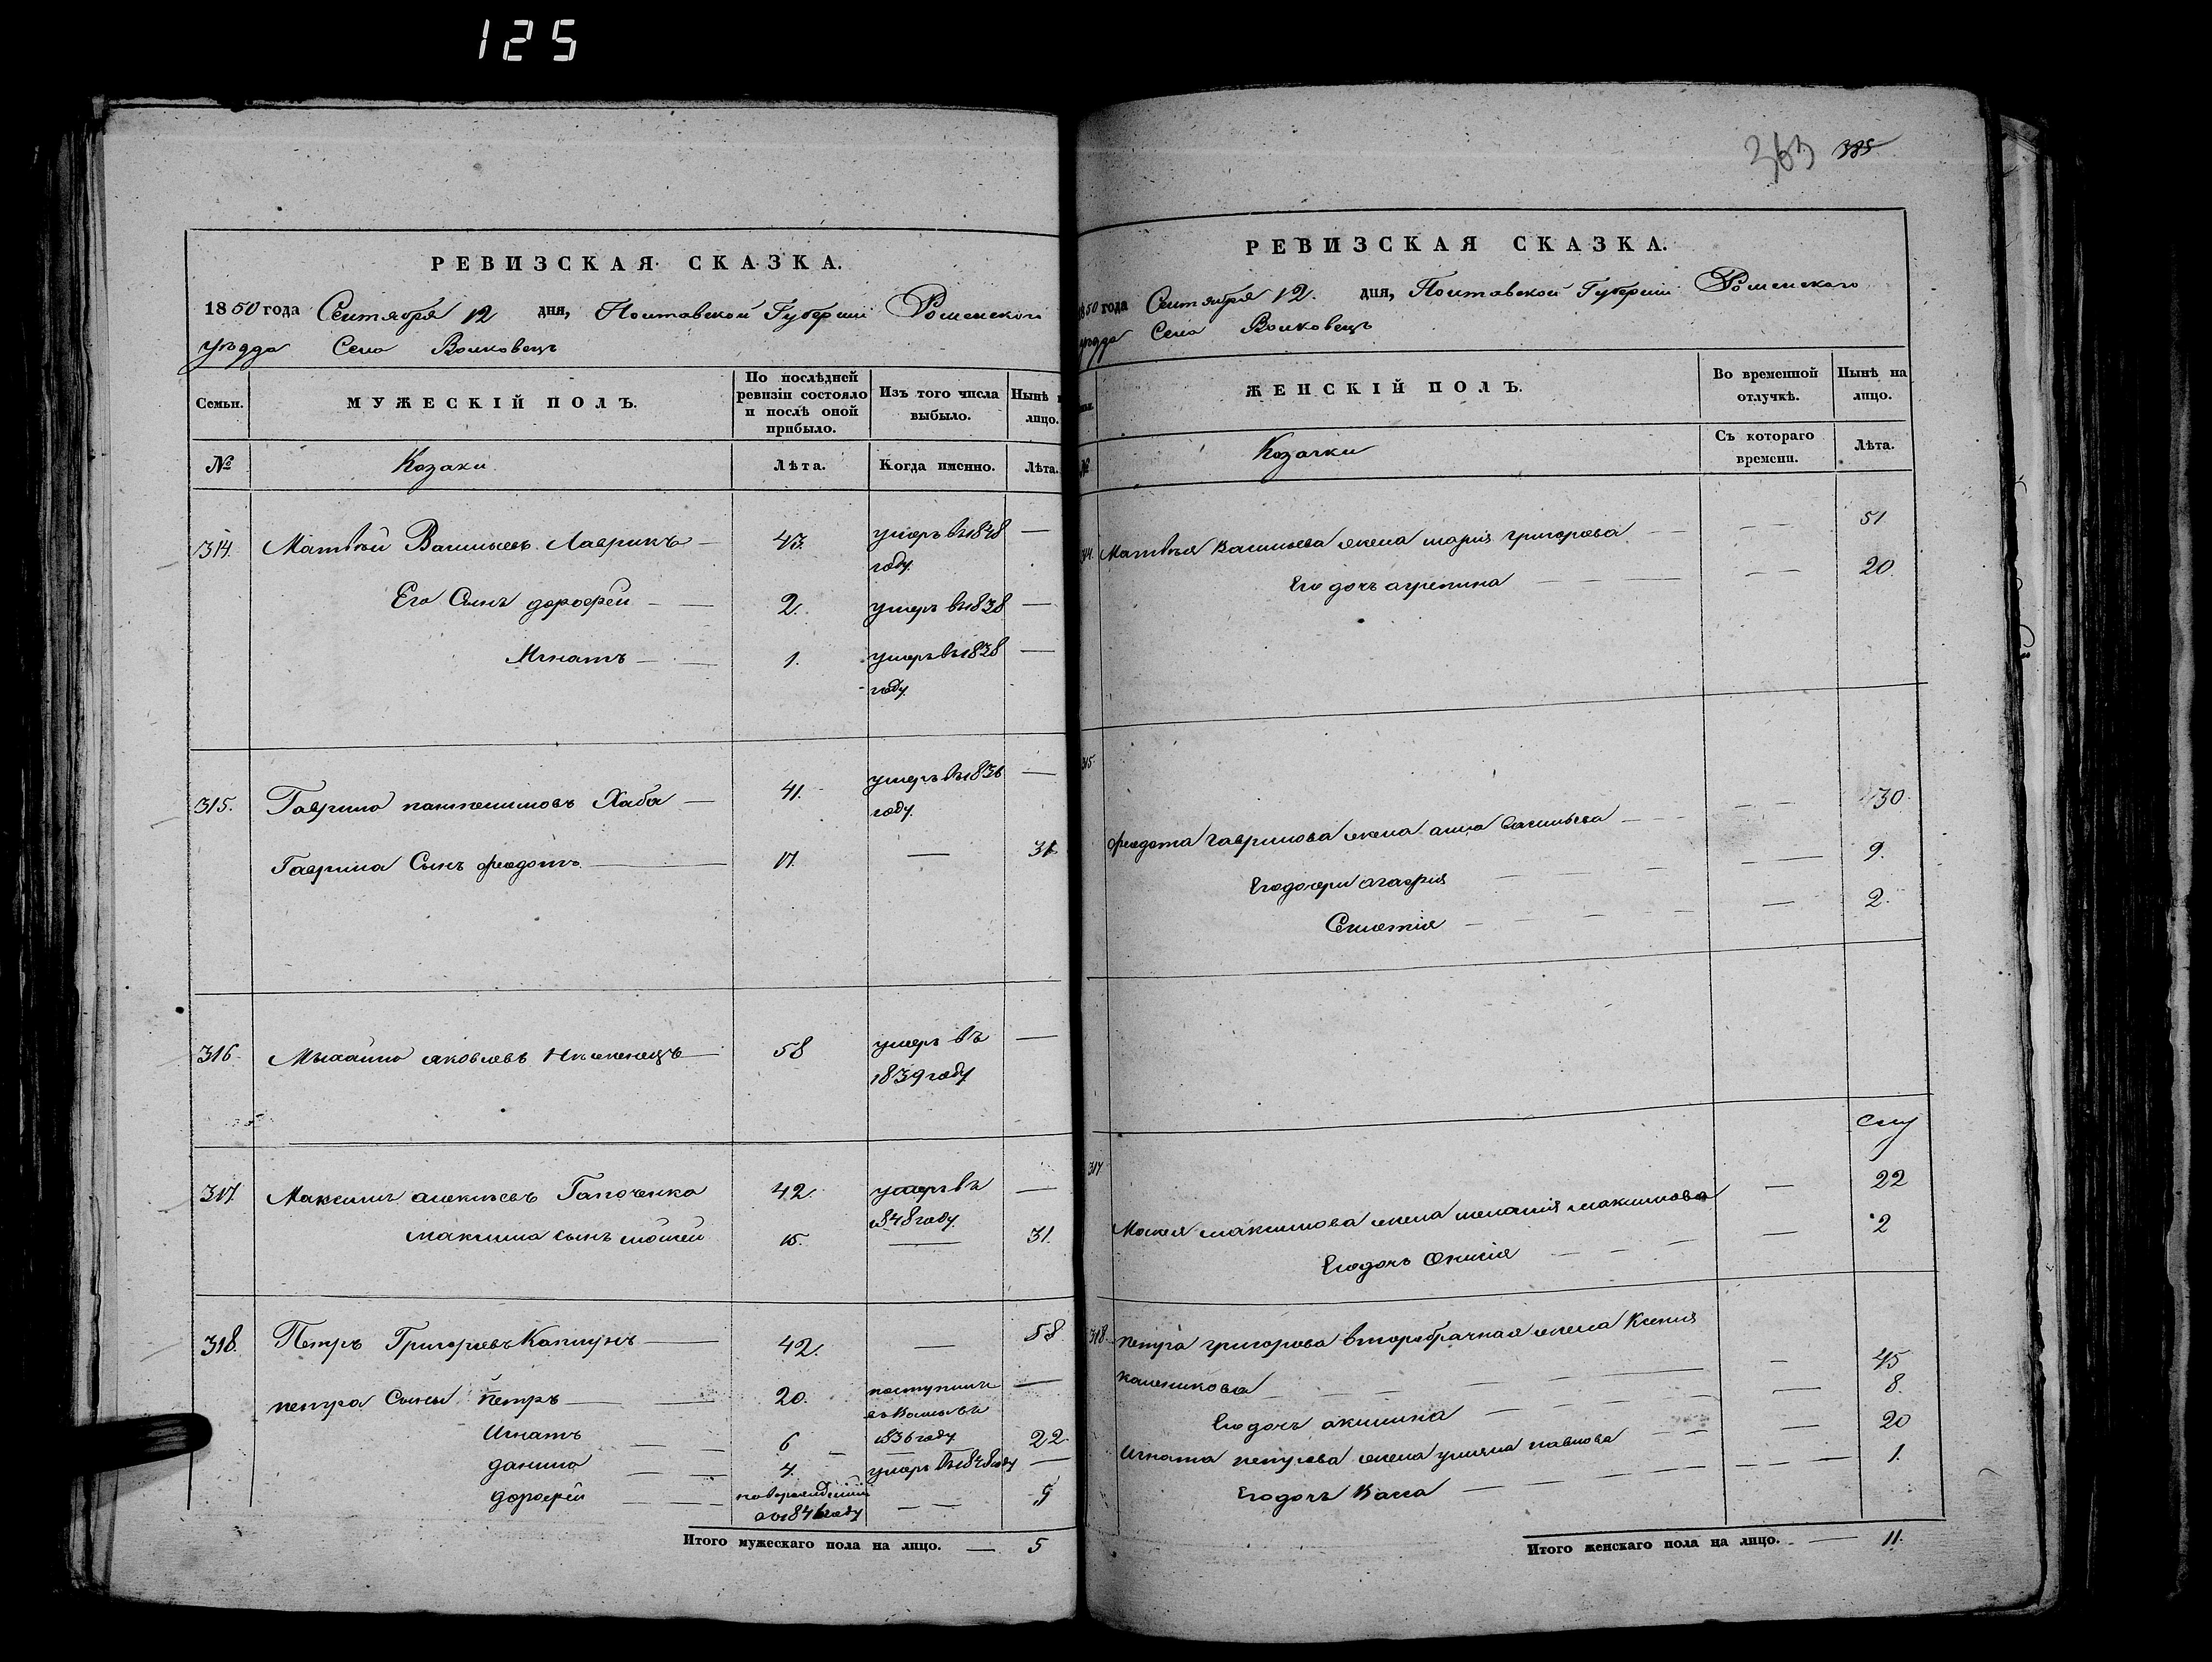 125
363 385
РЕВИЗСКАЯ СКАЗКА.
1850 года Сентября 12 дня, Полтавской Губернии Роменского
уѣзда Села Волковецъ
Семьи.
МУЖЕСКІЙ ПОЛЪ.
По послѣдней ревизіи состояло и послѣ оной прибыло.
Изъ того числа выбыло.
Нынѣ лицо.
№
Козаки
Лѣта.
Когда именно.
Лѣта.
314. Матвѣй Васильевъ Лаврикъ — 43. умеръ въ 1848 —
году.
Его Сынъ дорофей — — 2. умеръ в 1838 —
Игнатъ — — 1. умеръ въ 1838 —
году.
315. Гаврило пантелимовъ Хаба — 41. умеръ въ 1836 —
году.
Гаврила Сынъ федотъ — 17. — 31
316. Михайло яковлевъ 58 умеръ въ —
1839 году
317. Максимъ алексѣевъ Гапоченко 42. умеръ въ —
1848 году.
максима сынъ мойсей 15. — 31.
318. Петръ Григорьевъ Каптунъ — 42. — 58
петра Сыны петръ — — 20. поступилъ —
1836 году
Игнатъ — — 6 — 22
данило — — 4. умеръ въ 1848 году —
дорофей — — новорожденный
1846 году — — 5
Итого мужескаго пола на лицо. — 5
РЕВИЗСКАЯ СКАЗКА.
1850 года Сентября 12. дня, Полтавской Губернии Роменского
уѣзда Села Волковецъ
ЖЕНСКІЙ ПОЛЪ.
Во временной отлучкѣ.
Нынѣ на лицо.
№
Козачки
Съ котораго времени.
Лѣта.
314. Матвѣя Васильева жена мария григорьева — — — 51
Его дочь агрепина — — — — 20.
315.
федота гаврилова жена анна васильева — — — 30.
Его дочери агафия — — — — 9.
— — — 2.
317.
Мойсея максимова жена мелания максимова — 22
Его дочь — — — 2
318. петра григорьева второбрачная жена Ксения
— — — — 45
Его дочь акилина — — 8.
Игната петрова жена ульяна павлова — — — 20
Его дочь — — — 1.
Итого женскаго пола на лицо. — 11.